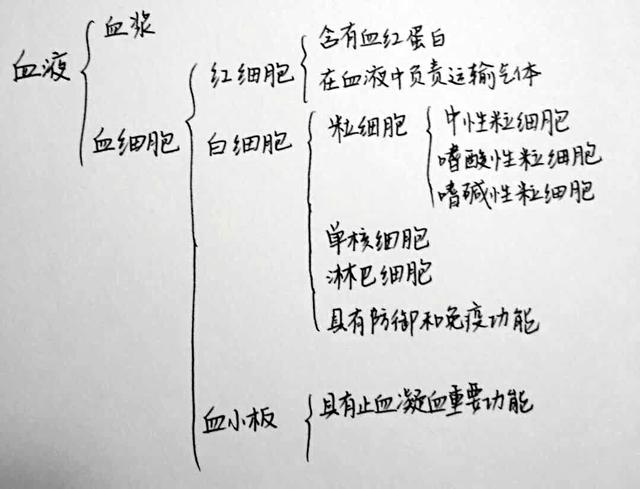 血液
血浆
血细胞
红细胞
含有血红蛋白
在血液中负责运输气体
白细胞
粒细胞
中性粒细胞
嗜酸性粒细胞
嗜碱性粒细胞
单核细胞
淋巴细胞
具有防御和免疫功能
血小板
具有止血凝血重要功能